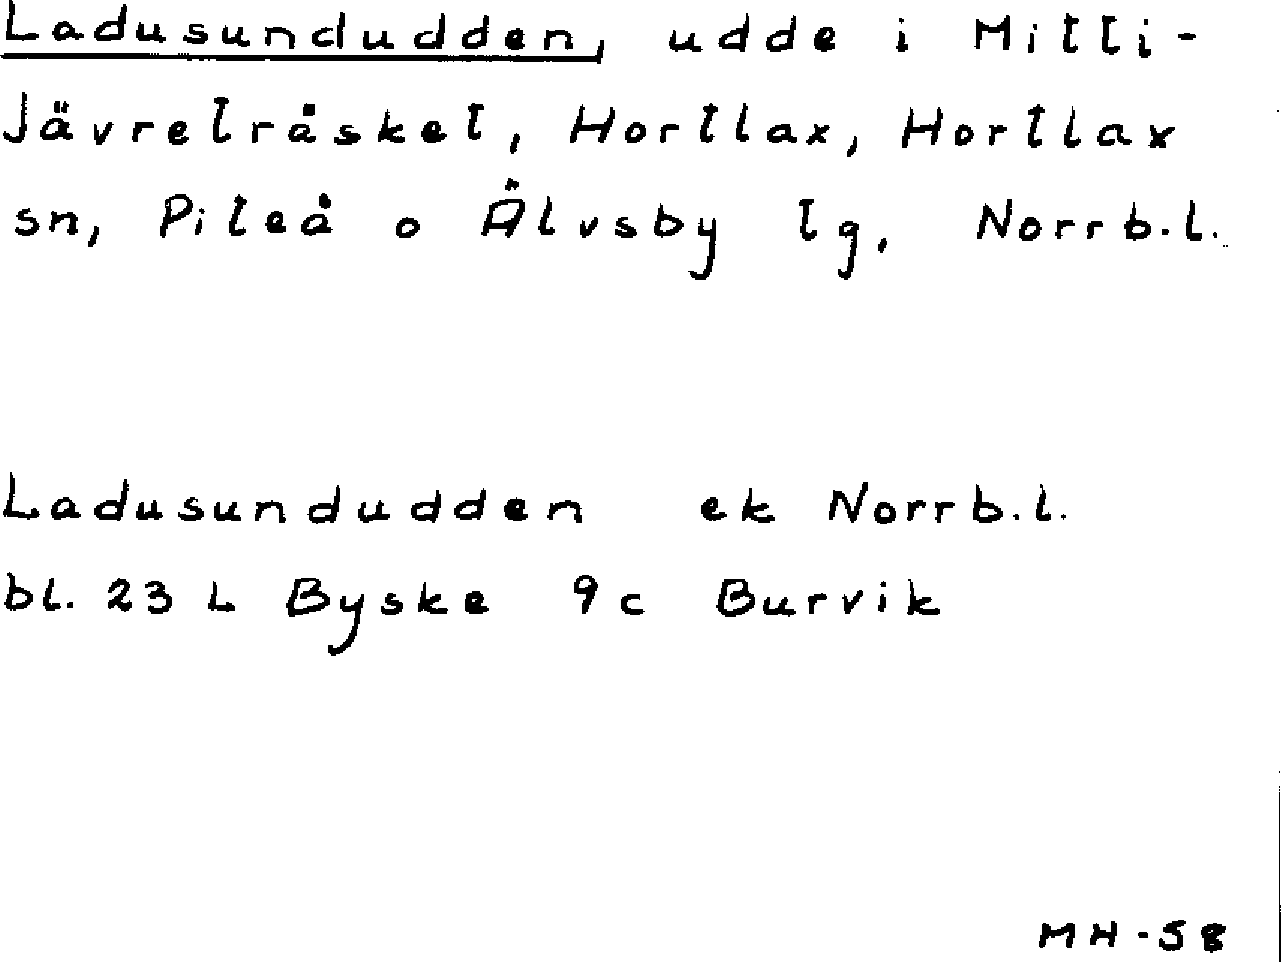 Ladusundudden, udde i Mitti-
Jävreträsket, Hortlax, Hortlax
sn, Piteå o Älvsby tg, Norrb.l.
Ladusundudden ek Norrb.l.
bl. 23 L Byske 9c Burvik
MH-58